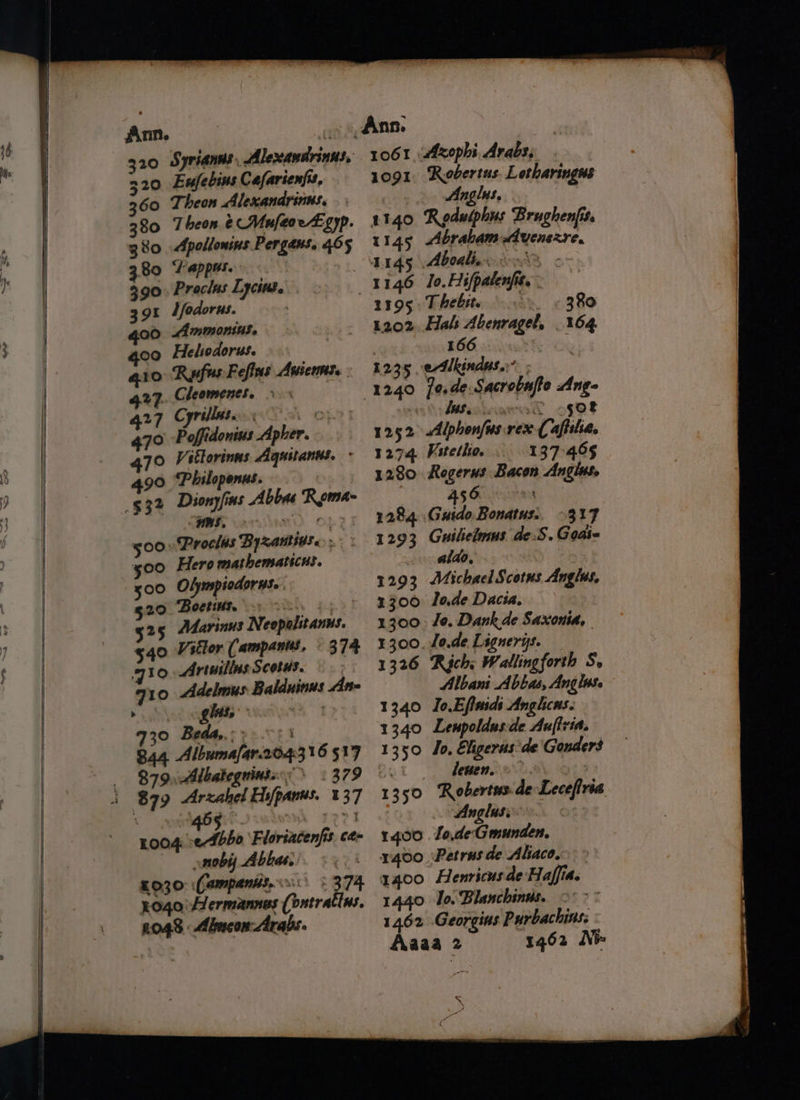 Ann.
320 Syrianus Alexandrinus,
320 Eusebius Cæsariensis,
360 Theon Alexandrinus,
380 Theon è Musæo Ægyp.
380 Apollonius Pergæus. 465
380 Pappus.
390 Proclus Lycius.
391 Isodorus.
400 Ammonius,
400 Heliodorus.
410 Rufus Festus Auienus.
427 Cleomenes.
427 Cyrillus.
470 Possidonius Apher.
470 Victorinus Aquitanus.
490 Philoponus.
532 Dionysius Abbas Roma-
nus,
500 Proclus Byzantius.
500 Hero mathematicus.
500 Olympiodorus.
520 Boetius.
525 Marinus Neopolitanus.
540 Victor Campanus, 374
710 Artuillus Scotus.
710 Adelmus Balduinus An-
glus,
730 Beda,
844 Albumasar. 204 316 517
879 Albategnius. 379
879 Arzahel Hispanus. 137
465
1004 Abbo Floriacensis cæ-
nobij Abbas.
1030 Campanus. 374
1040 Hermannus Contractus.
1048 Almeon Arabs.
Ann.
1061 Azophi Arabs.
1091 Robertus Lotharingus
Anglus,
1140 Rodulphus Brughensis.
1145 Abraham Auenezre.
1145 Aboali.
1146 Io. Hispalensis.
1195 Thebit. 380
1202 Hali Abenragel, 164
166
1235 Alkindus.
1240 Io. de Sacrobusto Ang-
lus. 501
1252 Alphonsus rex Castilia.
1274 Vitellio. 137 465
1280 Rogerus Bacon Anglus.
456
1284 Guido Bonatus. 317
1293 Guilielmus de S. Godi-
aldo.
1293 Michael Scotus Anglus.
1300 Io. de Dacia.
1300 Io. Dank de Saxonia,
1300 Io. de Lignerijs.
1326 Rich. Wallingforth S.
Albani Abbas, Anglus.
1340 Io. Estuidi Anglicus.
1340 Leupoldus de Austria.
1350 Io. Eligerus de Gonders
leuen.
1350 Robertus de Lecestria
Anglus.
1400 Io. de Gmunden.
1400 Petrus de Aliaco.
1400 Henricus de Hassia.
1440 Io. Blanchinus.
1462 Georgius Purbachius.
Aaaa 2 1462 Ni-